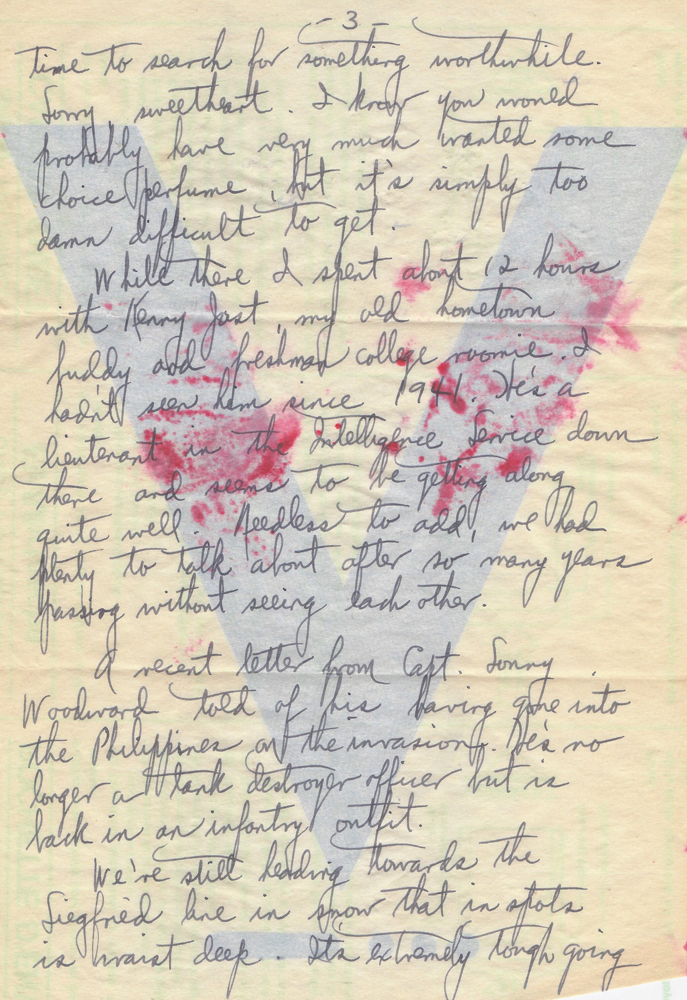 - 3 -
time to search for something worthwhile.
Sorry, sweetheart. I know you would
probably have very much wanted some
choice perfume, but it's simply too
damn difficult to get.
While there I spent about 12 hours
with Kenny Jast, my old hometown
buddy and freshman college roomie. I
hadn't seen him since 1941. He's a
lieutenant in the Intelligence Service down
there and seems to be getting along
quite well. Needless to add, we had
plenty to talk about after so many years
passing without seeing each other.
A recent letter from Capt. Sonny
Woodward told of his having gone into
the Philippines on the invasion. He's no
longer a tank destroyer officer but is
back in an infantry outfit.
We're still heading towards the
Siegfried line in snow that in spots
is waist deep. Its extremely tough going